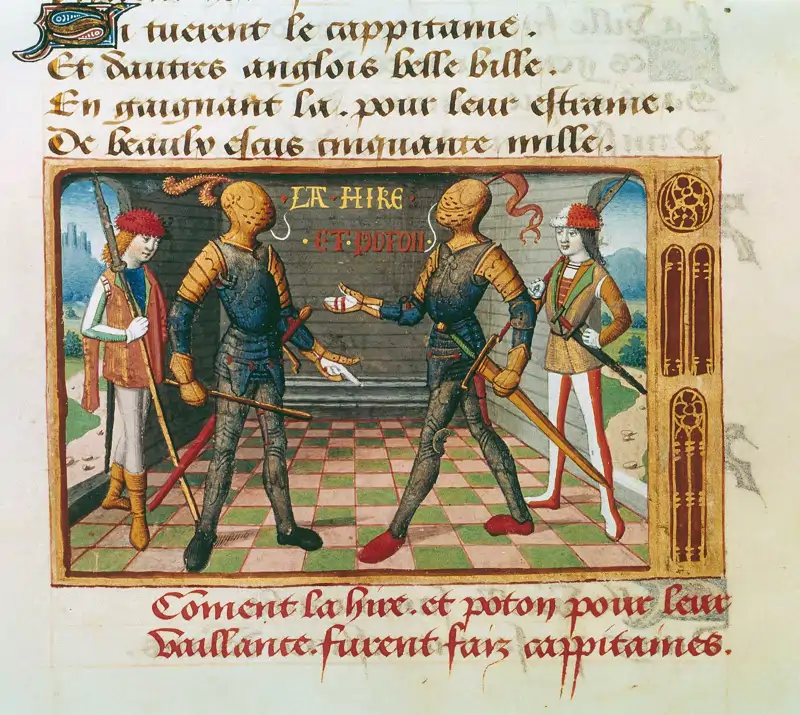 Si tuerent le cappitaine.
Et dautres anglois belle bille.
En gaignant la. pour leur estraine.
De beaulx escus cinquante mille.
·LA·HIRE·
·ET·POTON·
Coment la hire. et poton pour leur
vaillance. furent faiz cappitaines.